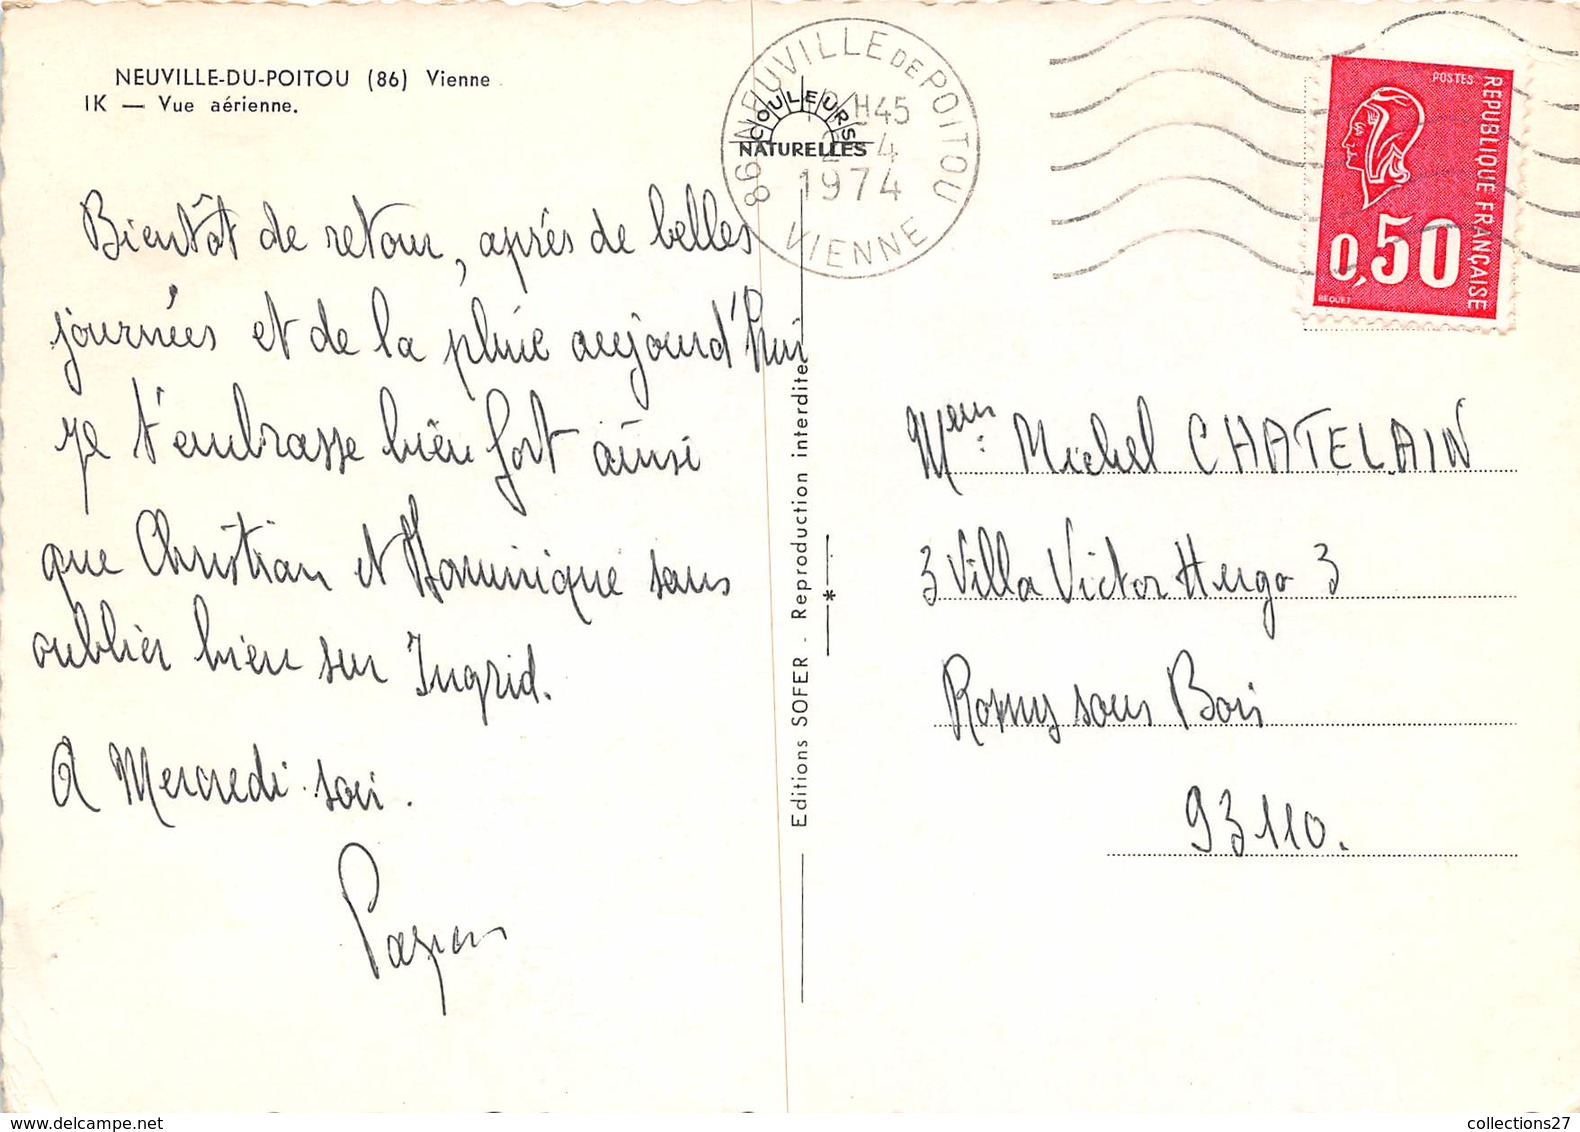 NEUVILLE-DU-POITOU (86) Vienne
IK — Vue aérienne.
COULEURS
NATURELLES
86 NEUVILLE DE POITOU
H45
2-4
1974
VIENNE
POSTES
REPUBLIQUE FRANÇAISE
0,50
BEQUET
Bientôt de retour, après de belles
journées et de la pluie aujourd'hui
je t'embrasse bien fort ainsi
que Christian et Dominique sans
oublier bien sur Ingrid.
A Mercredi soir.
Editions SOFER - Reproduction interdite
Michel CHATELAIN
3 Villa Victor Hugo 3
Rosny sous Bois
93110.
collections27